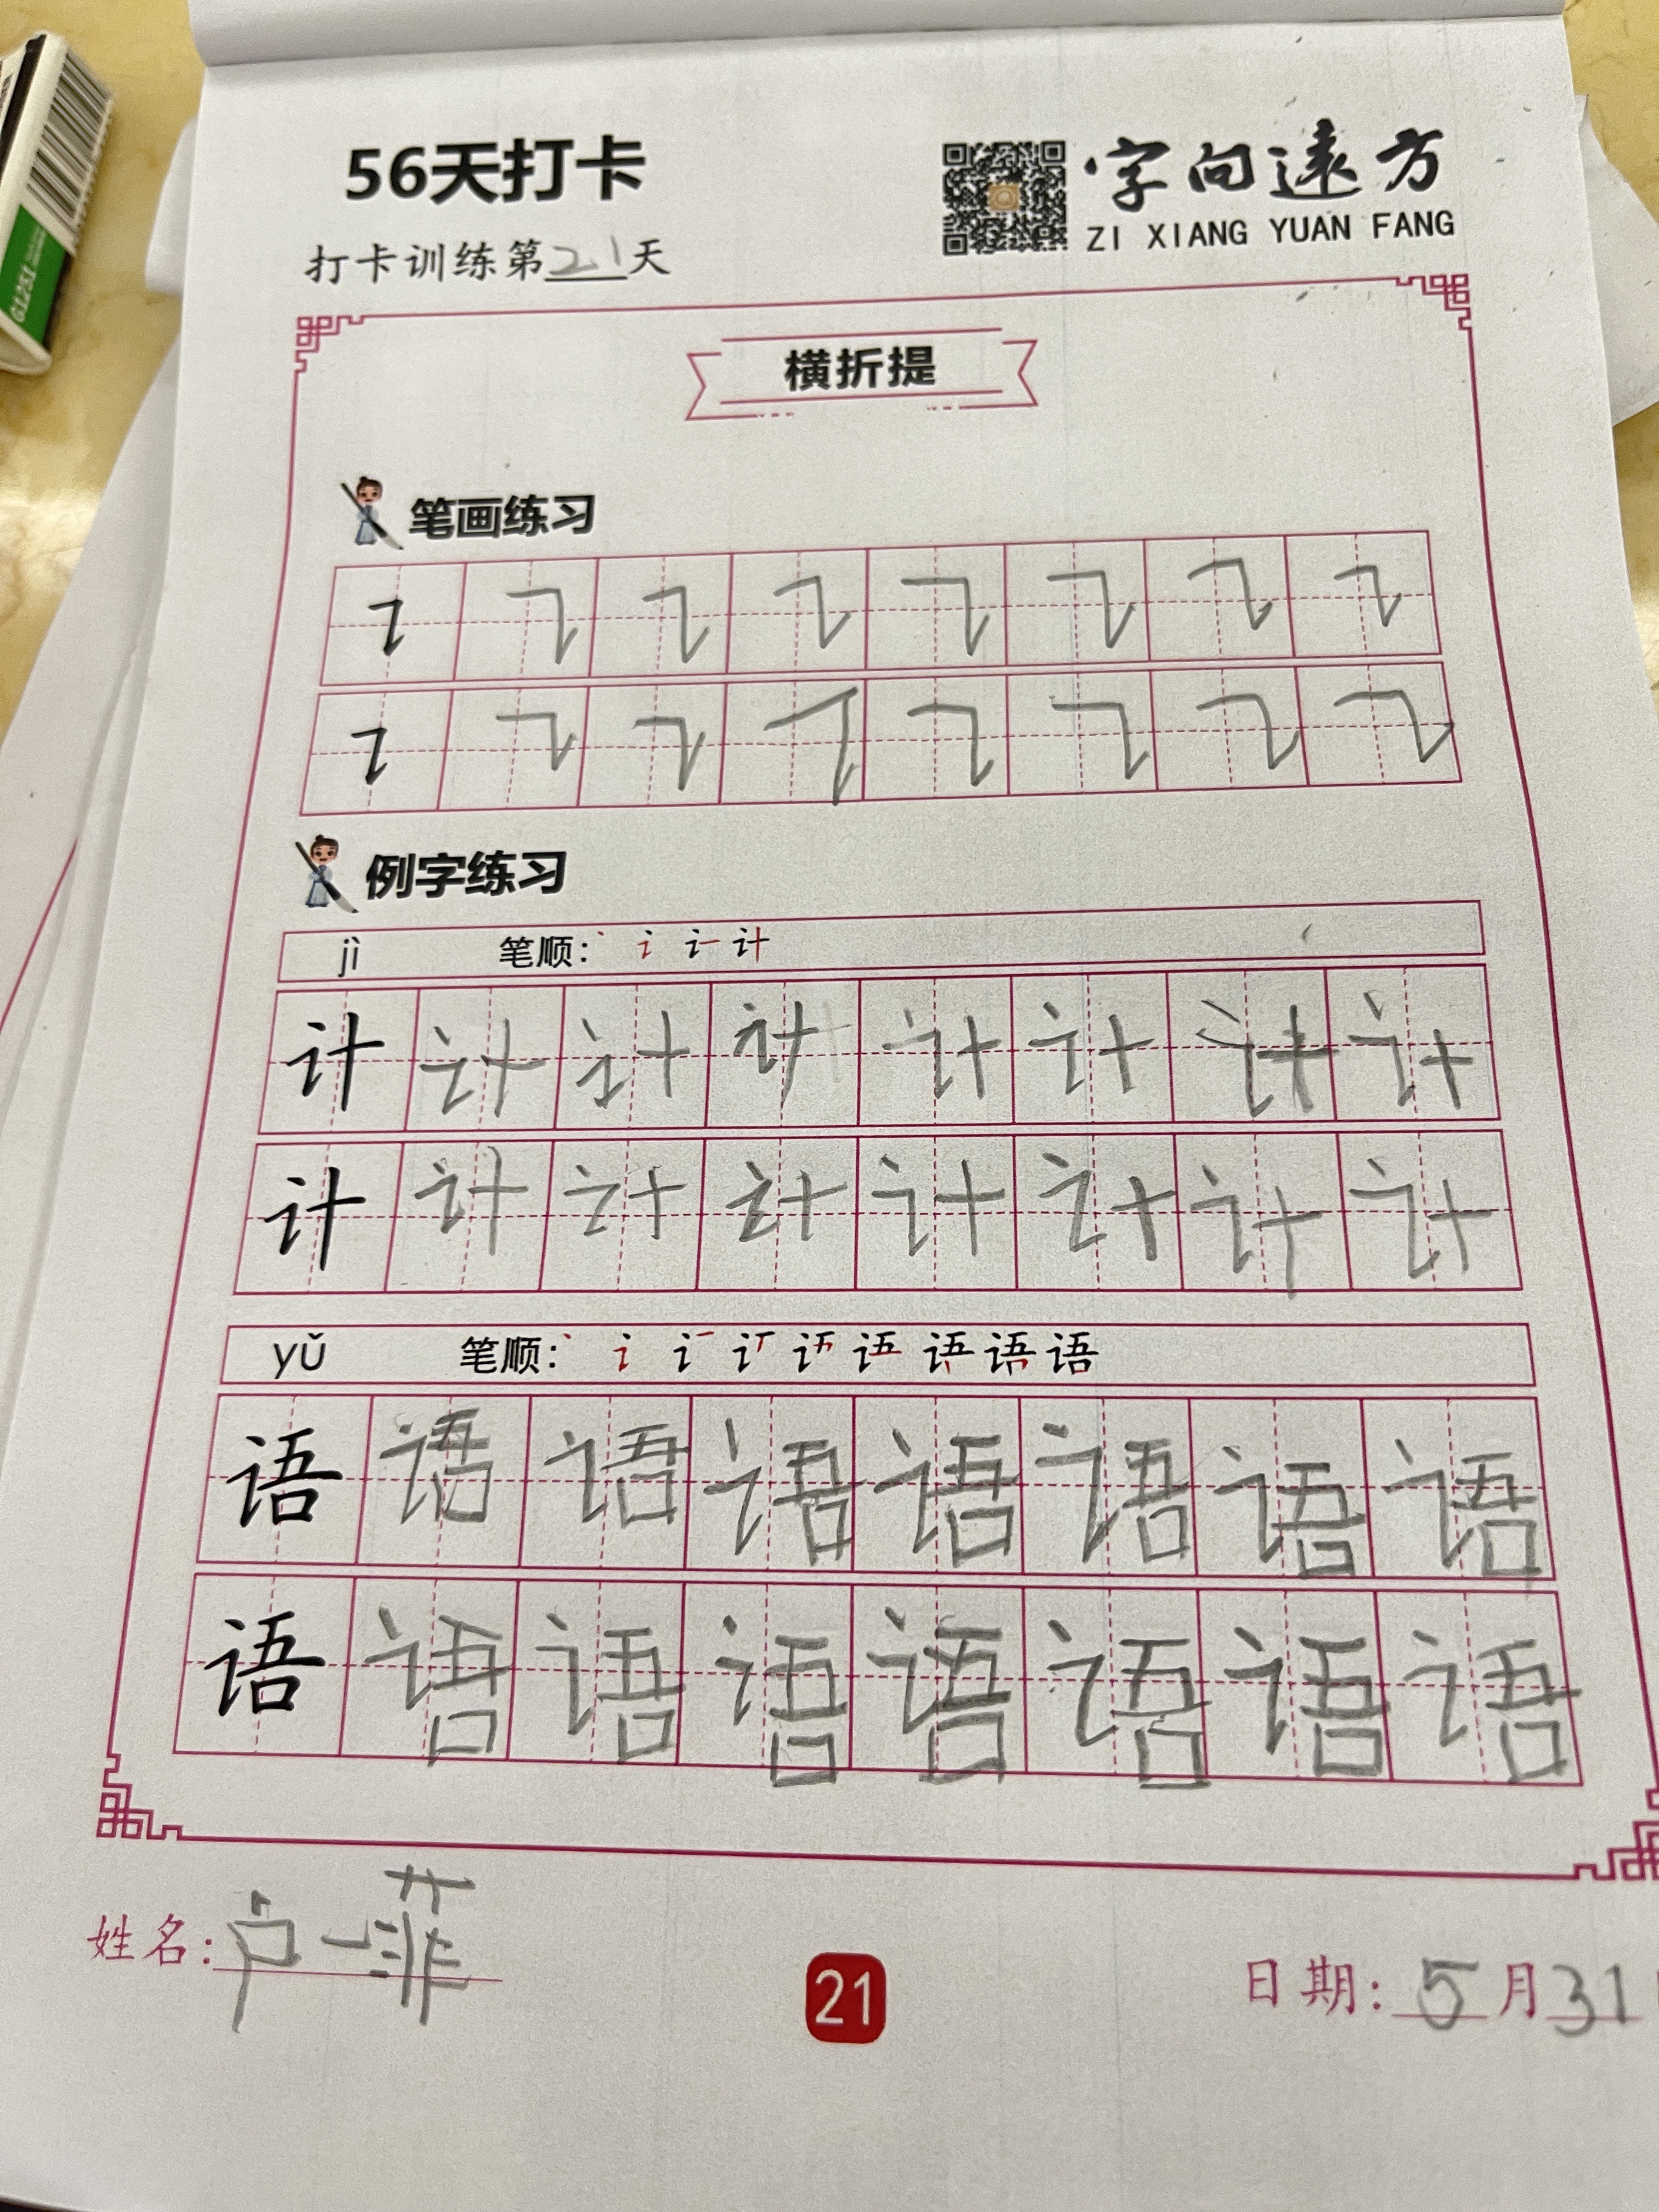 56天打卡
字向遠方
ZI XIANG YUAN FANG
打卡训练第21天
横折提
笔画练习
例字练习
jì 笔顺：
计 计 计 计 计 计 计 计
计 计 计 计 计 计 计 计
yǔ 笔顺： 语
语 语 语 语 语 语 语 语
语 语 语 语 语 语 语 语
姓名：卢一菲
21
日期：5月31
G1251